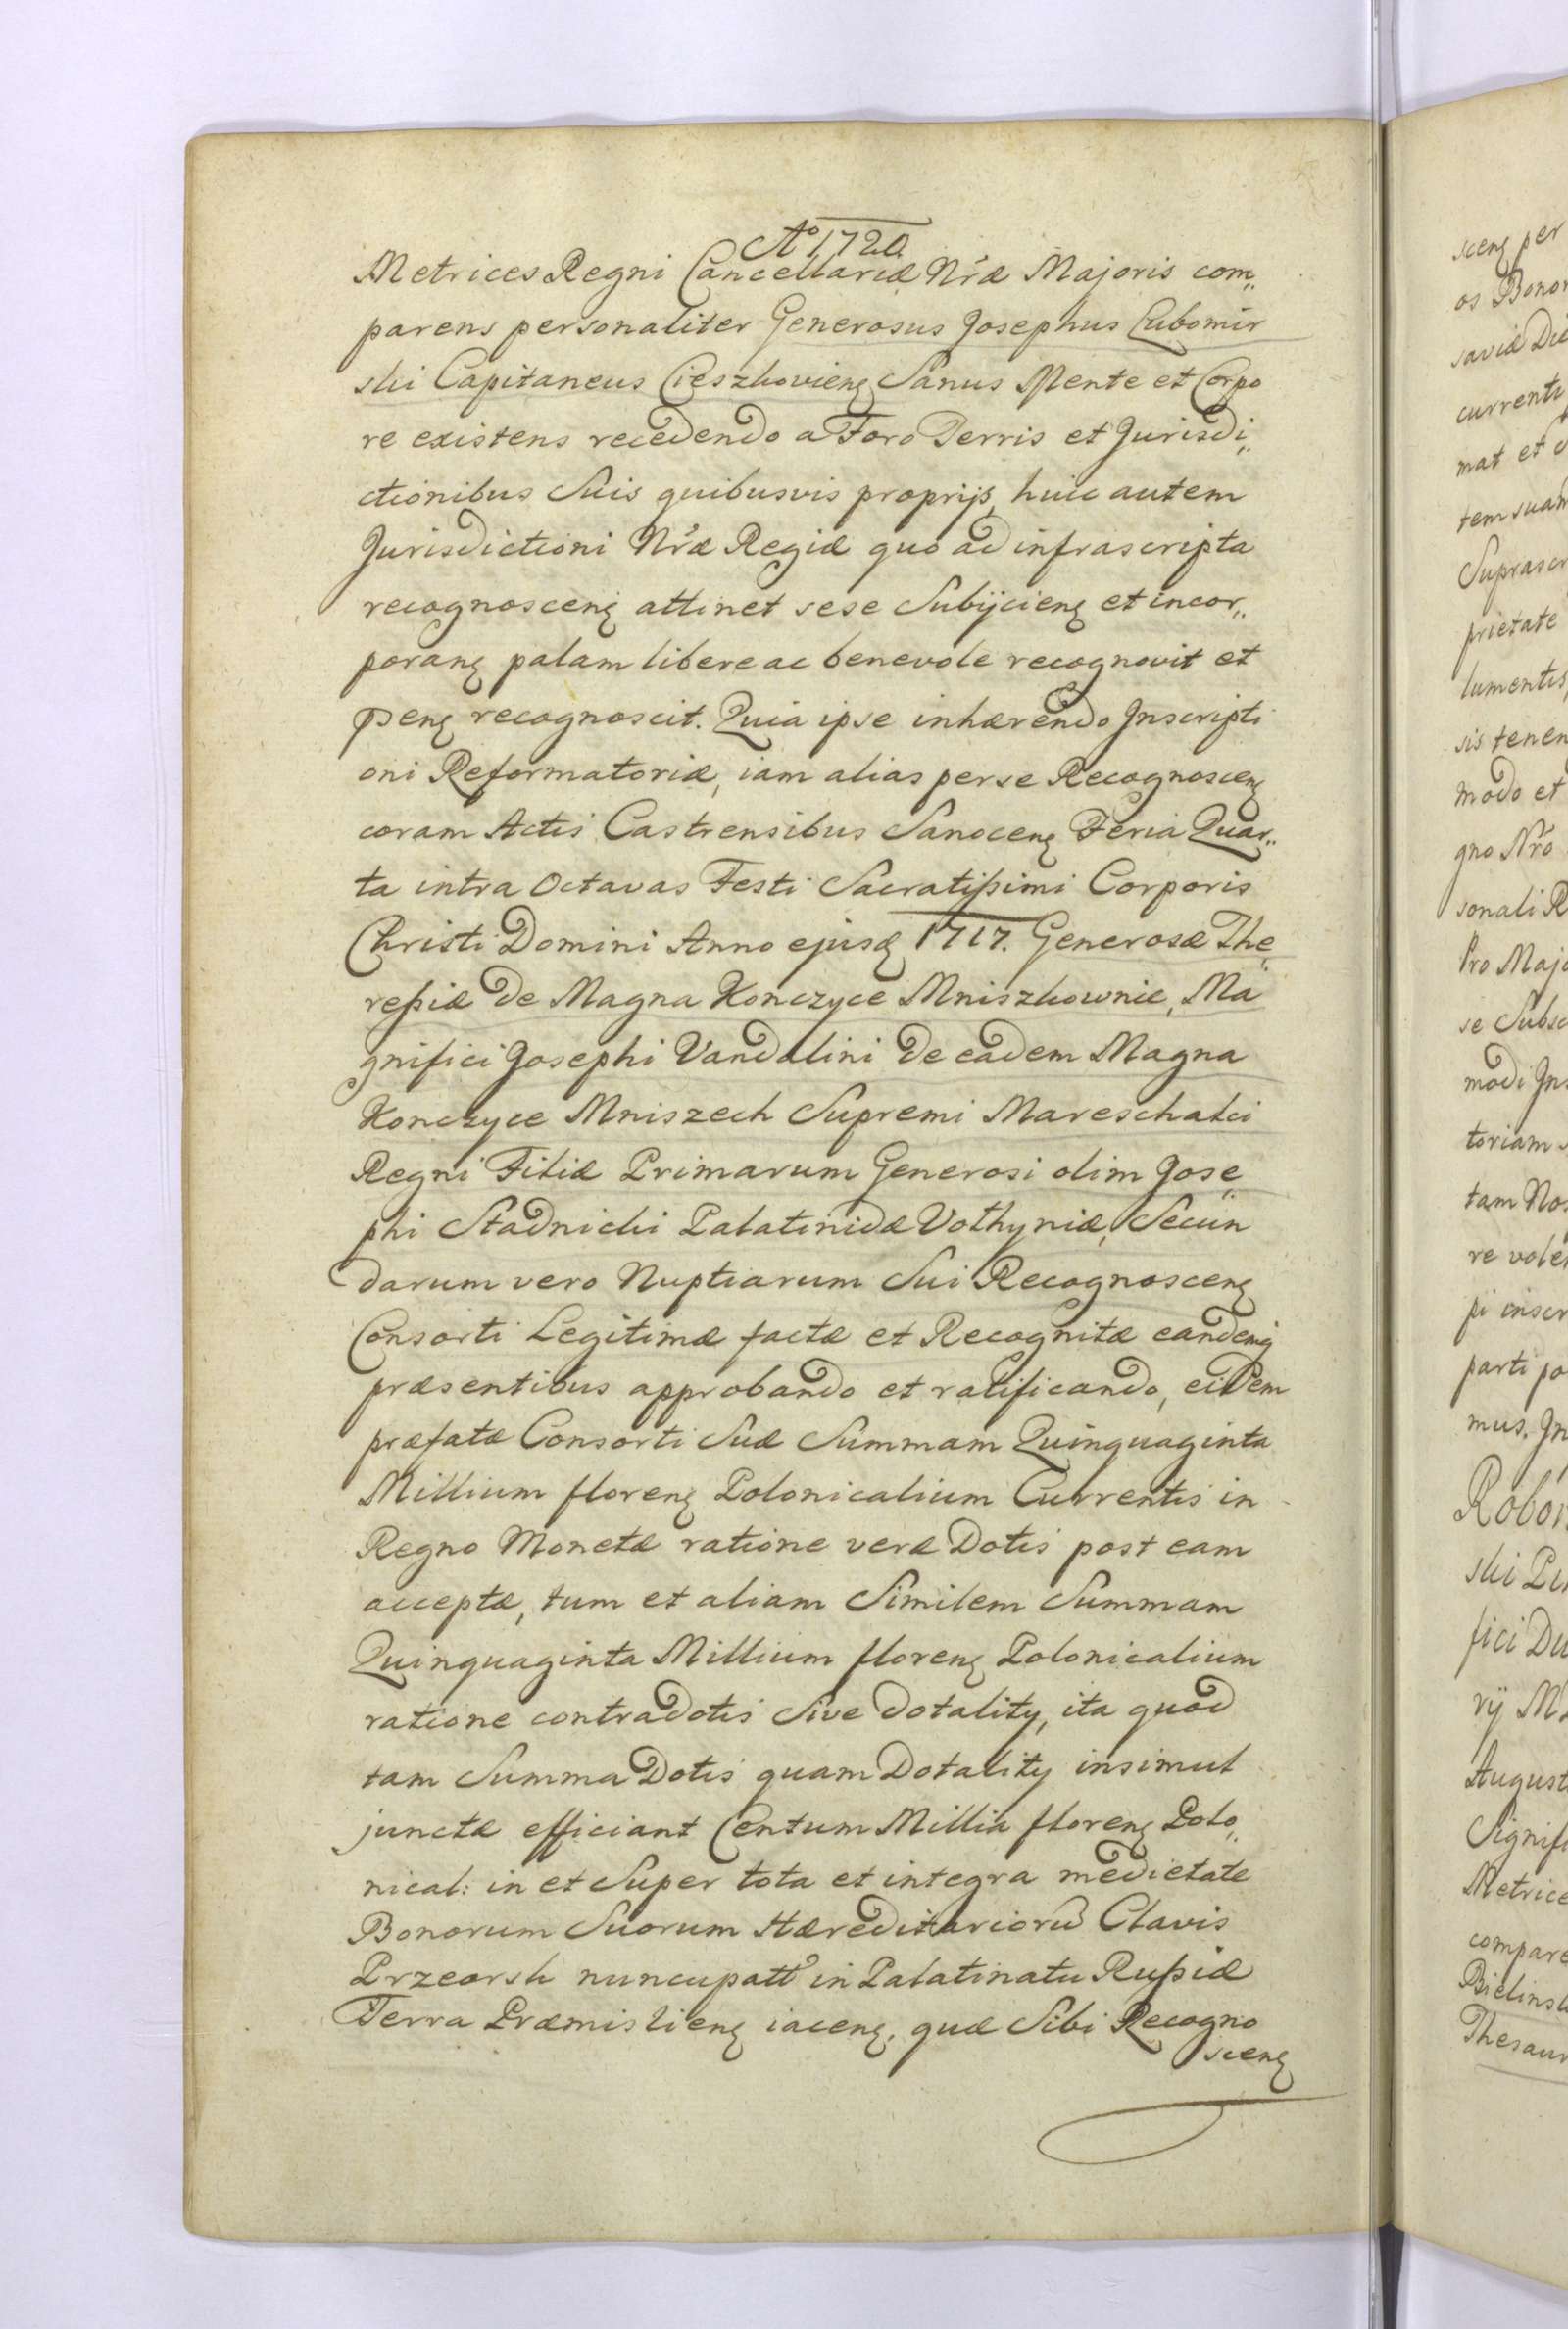 Aº 1720.
Metrices Regni Cancellariæ Nr̃æ Majoris com„
parens personaliter Generosus Josephus Lubomir
ski Capitaneus Cieszkovienꝭ Sanus Mente et Corpo
re existens recedendo a Foro Terris et Jurisdi„
ctionibus Suis quibusvis proprijs, huic autem
Jurisdictioni Nr̃æ Regiæ quo ad infrascripta
recognoscenꝭ attinet sese Subijcienꝭ et incor„
poranꝭ palam libere ac benevole recognovit et
p̃senꝭ recognoscit. Quia ipse inhærendo Inscripti
oni Reformatoriæ, iam alias per se Recognoscenꝭ
coram Actis Castrensibus Sanocenꝭ Feria Quar„
ta intra Octavas Festi Sacratißimi Corporis
Christi Domini Anno ejusd̃ 1717. Generosæ The„
reßiæ de Magna Konczyce Mniszkownie, Ma
gnifici Josephi Vandalini de eadem Magna
Konczyce Mniszech Supremi Mareschalci
Regni Filiæ Primarum Generosi olim Jose„
phi Stadnicki Palatinidæ Volhyniæ, Secun
darum vero Nuptiarum Sui Recognoscenꝭ
Consorti Legitimæ factæ et Recognitæ eandemq̃
præsentibus approbando et ratificando, eidem
præfatæ Consorti Suæ Summam Quinquaginta
Millium florenꝭ Polonicalium Currentis in
Regno Monetæ ratione veræ Dotis post eam
acceptæ, tum et aliam Similem Summam
Quinquaginta Millium florenꝭ Polonicalium
ratione contradotis Sive dotality, ita quod
tam Summa Dotis quam Dotality insimul
junctæ efficiant Centum Millia florenꝭ Polo„
nical: in et Super tota et integra medietate
Bonorum Suorum Hæreditarioru᷃ Clavis
Przeorsk nuncupatt᷃ in Palatinatu Rußiæ
Terra Præmislienꝭ iacenꝭ, quæ Sibi Recogno
scenꝭ
scenꝭ per
os Bonor
saviæ Die
currenti
mat et
tem suam
Suprascr
prietate
lumentis
sis tenen
modo et
gno Nr̃o
sonali R
Pro Majo
se Subsc
modi Ins
toriam
tam Nos
re vole
pi inscr
parti po
mus. In
Robor
ski
fici Du
rij
August
Signifi
Metrice
compare
Bielinsk
Thesaur